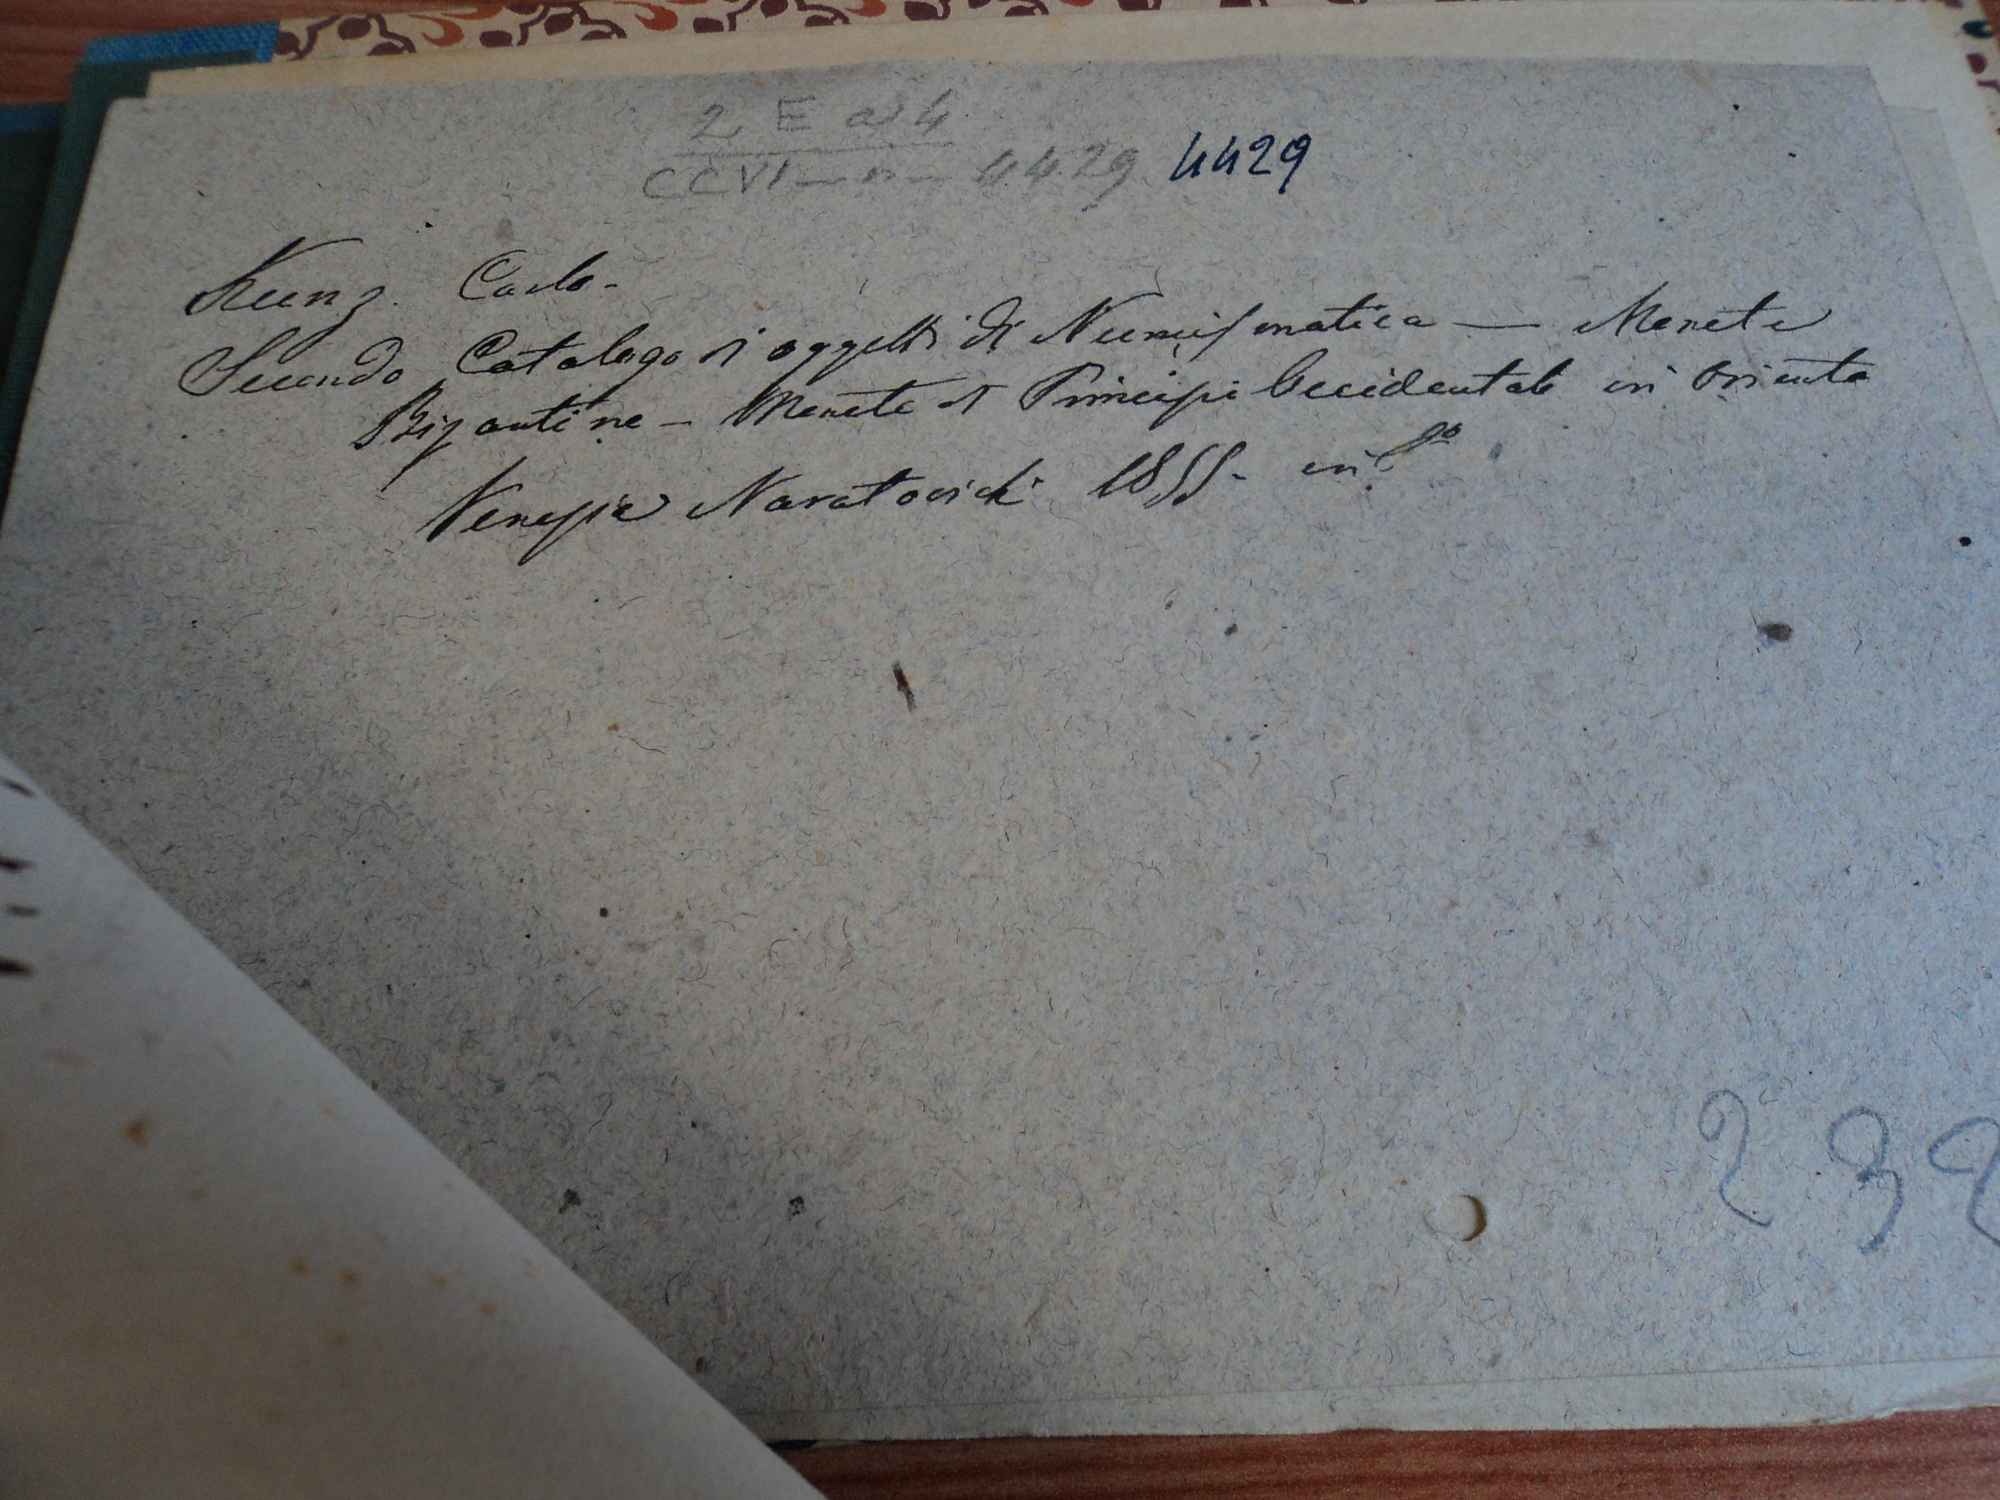 2 E a 4
CCVI - n - 4429 4429
Kunz. Carlo.
Secondo Catalogo di oggetti di Numismatica — Monete
Bizantine - Monete di Principi Occidentali in Oriente
Venezia Naratovich 1855. in 8º
232